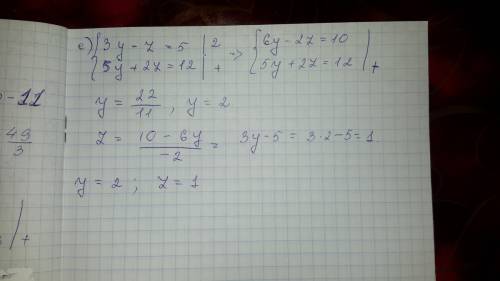 c) { 3y - z = 5 | · 2 => { 6y - 2z = 10 |
5y + 2z = 12 | + 5y + 2z = 12 | +
- 11
y = 22/11 , y = 2
49/3
z = (10 - 6y)/(-2) = 3y - 5 = 3 · 2 - 5 = 1
y = 2 ; z = 1
| +